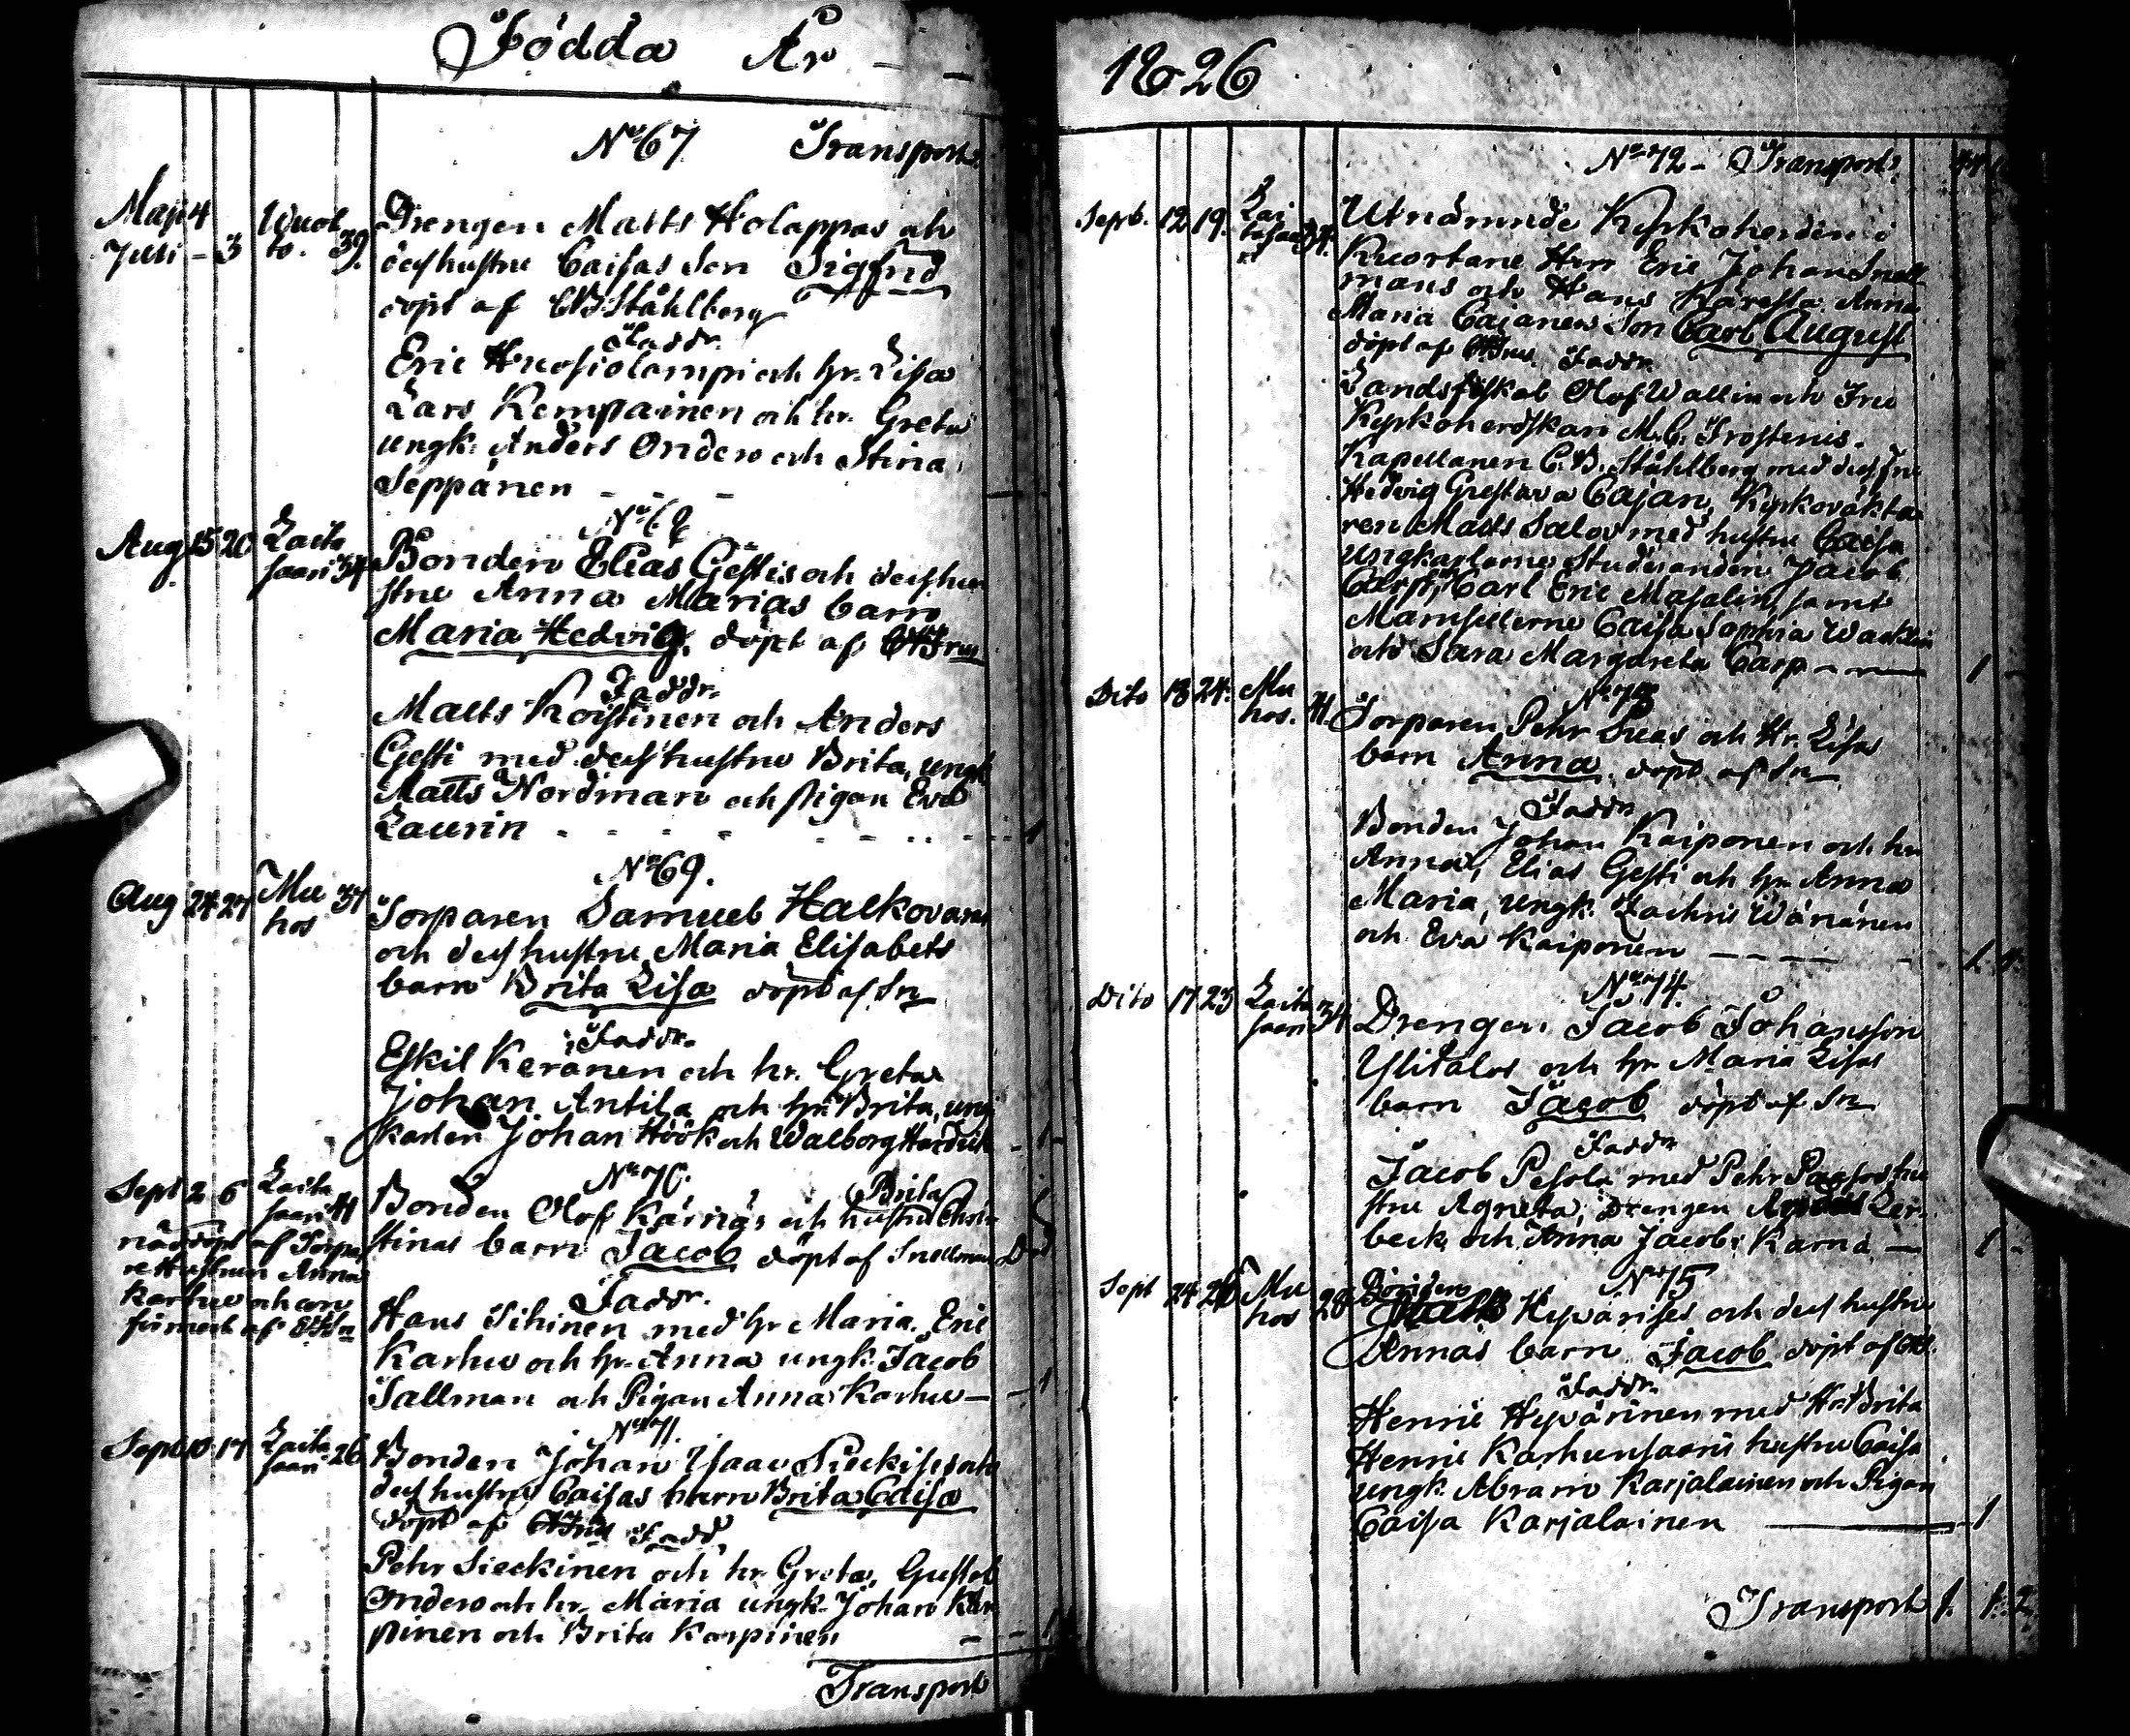 Födda År
No 67 Transport
Maji 4
Julii - 3
Wuol
to. 39.
Drengen Matts Holappas och
dess hustru Caisas Son Sigfrid
döpt af CB Ståhlberg
Faddr.
Eric Huosiolampi och hr. Lisa
Lars Kempainen och hr. Greta
ungk. Anders Onden och Stina
Seppänen - - -
No 68
Aug 15 20 Laita
saari 34
Bonden Elias Gestis och dess hu
stru Anna Marias barn
Maria Hedvig. döpt af
Faddr.
Matts Koistinen och Anders
Gesti med dess hustru Brita, ungk
Matts Nordman och pigan Eva
Laurin - - - - 1
No 69.
Aug 24 27 Mu 37
hos
Torparen Samuel Halkovaras
och dess hustru Maria Elisabets
barn Brita Lisa döpt af Sn
Faddr.
Eskil Keränen och hr. Greta
Johan Antila och hr. Brita, ung
karlen Johan Höök och Walborg - 1
No 70.
Sept 2 6 Laita
saari 41
Bonden Olof Kärnäs och hustru Brita Chri
stinas barn Jacob döpt af Snellman
nöddöpt af Torpa
re Hustrun Anna
Karhu och con
firmerat af
Faddr.
Hans Sihinen med hr Maria. Eric
Karhu och hr. Anna ungk. Jacob
Sallman och Pigan Anna Karhu - - 1
No 71.
Sept 10 17 Laita
saari 26
Bonden Johan Isaac Sieckises och
dess hustru Caisas barn Brita Caisa
döpt af Fadd.
Pehr Sieckinen och hr. Greta, Gustaf
Onden och hr. Maria ungk. Johan Kar
pinen och Brita Karpinen - - - 1
Transport
1826
No 72 - Transport
Sept. 12 19. Lai
tasaa
ri 34.
Utnämnde Kyrkoherden i
Kuortane Herr Eric Johan Snell
mans och Hans Käresta Anna
Maria Cajanens Son Carl August
döpt af Faddr.
Landsfiskal Olof Wallin och Fru
Kyrkoherdskan M. C. Frostenis.
Kapellanen C. B. Ståhlberg med dess Fru
Hedvig Gustava Cajan, Kyrkovakta
ren Matts Salov med hustru Caisa
ungkarlarne Studeranden Jacob
Carp, Carl Eric Masalin, samt
Mamsellerne Caisa Sophia Wacklin
och Sara Margareta Carp - - 1 -
No 73
Dito 13 24. Mu
hos. 41.
Torparen Pehr och Hr. Lisas
barn Anna döpt af Sn
Faddr
Bonden Johan Kaiponen och hr
Anna, Elias Gesti och hr. Anna
Maria, ungk. Zachris Wänänen
och Eva Kaiponen - - - - 1
No 74.
Dito 17 23 Laita
saari 34
Drengen Jacob Johansson
Ylitalos och hr Maria Lisas
barn Jacob döpt af Sn
Faddr
Jacob Pesola med Pehr hu
stru Agneta, Drengen
beck och Anna Jacobs Karna - 1 -
No 75
Sept 24 26 Mu
hos 28
Bonden
Matts Hyvärises och dess hustru
Annas barn Jacob döpt af
Faddr.
Henric Hyvärinen med Hr. Brita
Henric Karhunsaaris hustru Caisa
ungk. Abram Karjalainen och Pigan
Caisa Karjalainen - 1
Transport